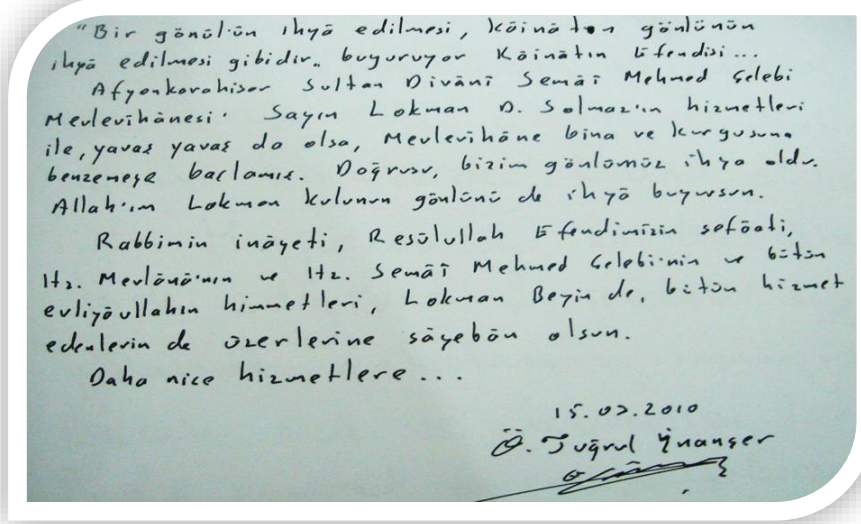 "Bir gönül'ün ihyâ edilmesi, kâinatın gönlünün
ihyâ edilmesi gibidir" buyuruyor Kâinâtın Efendisi...
Afyonkarahisar Sultan Divânî Semâî Mehmed Çelebi
Mevlevihânesi. Sayın Lokman D. Solmaz'ın hizmetleri
ile, yavaş yavaş da olsa, Mevlevihâne bina ve kurgusuna
benzemeğe başlamış. Doğrusu, bizim gönlümüz ihya oldu.
Allah'ım Lokman kulunun gönlünü de ihyâ buyursun.
Rabbimin inâyeti, Resûlullah Efendimizin şefâati,
Hz. Mevlânâ'nın ve Hz. Semâî Mehmed Çelebi'nin ve bütün
evliyâullahın himmetleri, Lokman Beyin de, bütün hizmet
edenlerin de üzerlerine sâyebân olsun.
Daha nice hizmetlere...
15.02.2010
Ö. Tuğrul İnançer